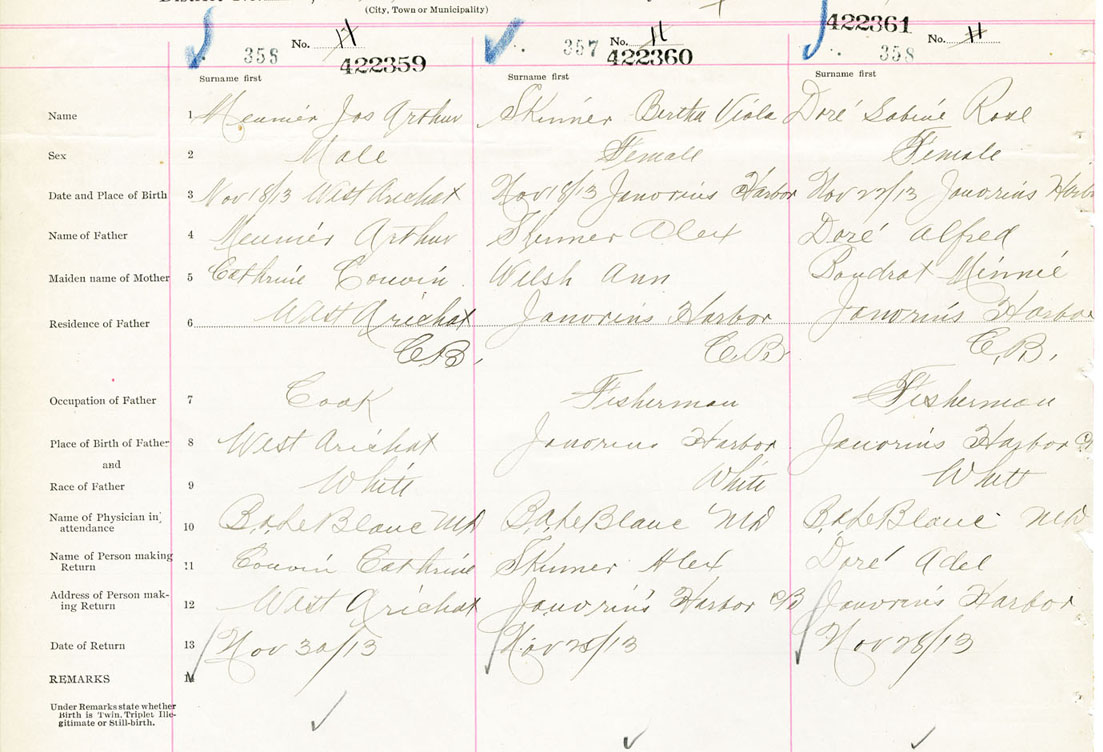 (City, Town or Municipality)
422361
358 No. 11 357 No. 11 358 No. 11
422359 422360
Surname first Surname first Surname first
Name 1 Meunier Jos Arthur Skinner Bertha Viola Doré Sabine Rose
Sex 2 Male Female Female
Date and Place of Birth 3 Nov 18/13 West Arichat Nov 18/13 Janvrins Harbor Nov 27/13 Janvrins Harbor
Name of Father 4 Meunier Arthur Skinner Alex Doré Alfred
Maiden name of Mother 5 Cathrine Couvin Welsh Ann Boudrot Minnie
Residence of Father 6 West Arichat Janvrins Harbor Janvrins Harbor
C.B. C.B. C.B.
Occupation of Father 7 Cook Fisherman Fisherman
Place of Birth of Father 8 West Arichat Janvrins Harbor Janvrins Harbor
and
Race of Father 9 White White White
Name of Physician in 10 B.A. LeBlanc MD B.A. LeBlanc MD B.A. LeBlanc MD
attendance
Name of Person making 11 Couvin Cathrine Skinner Alex Doré Adel
Return
Address of Person mak- 12 West Arichat Janvrins Harbor CB Janvrins Harbor
ing Return
Date of Return 13 Nov 30/13 Nov 28/13 Nov 28/13
REMARKS 14
Under Remarks state whether
Birth is Twin, Triplet Ille-
gitimate or Still-birth.